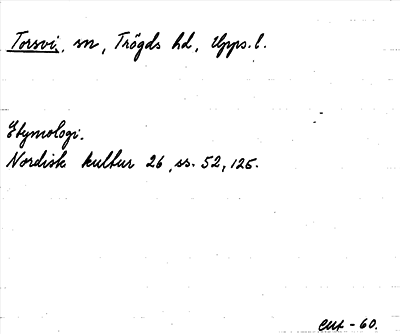 Torsvi, sn, Trögds hd, Upps. l.
Etymologi.
Nordisk kultur 26, ss. 52, 125.
EUt - 60.